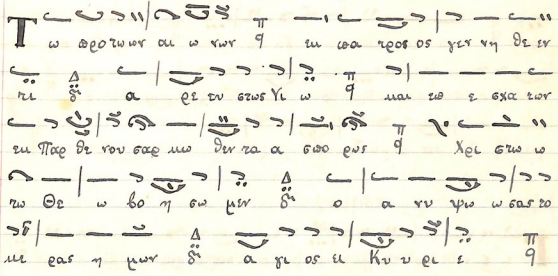 Τω προ τω ων αι ω νων π q εκ πα τρος ος γεν νη θε εν
τι Δ α ρε ευ στως Υι ω π q και επ ε σχα των
εκ Παρ θε νου σαρ κω θεν τα α σπο ρως π q Χρι στω ω
τω Θε ω βο η σω μεν Δ ο α νυ ψω ω σας το
κε ρας η μων Δ α γι ος ει Κυ υ ρι ε π q